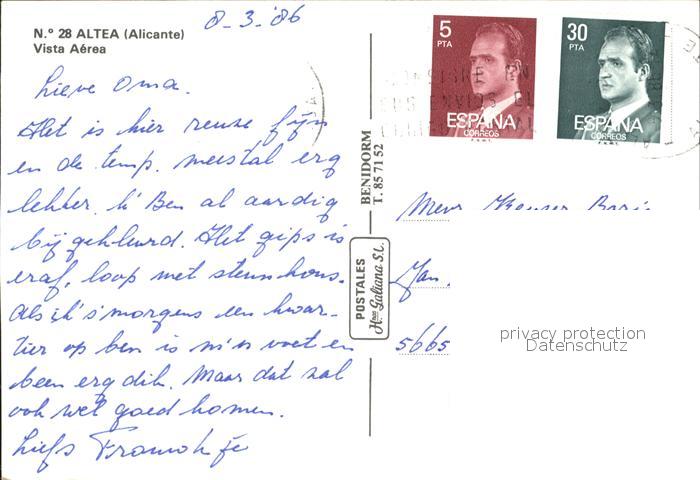 8-3-'86
N.º 28 ALTEA (Alicante)
Vista Aérea
Lieve Oma.
Het is hier reuze fijn
en de temp. meestal erg
lekker. k' Ben al aardig
bijgekleurd. Het gips is
eraf, loop met steunkous.
Als ik 's morgens een kwar-
tier op ben is m'n voet en
been erg dik. Maar dat zal
ook wel goed komen.
Liefs
BENIDORM
T. 85 71 52
POSTALES
Hnos Galiana S.L.
5 PTA
ESPAÑA
CORREOS
F.N.M.T.
30 PTA
ESPAÑA
CORREOS
F.N.M.T.
Mevr
Jan.
5665
privacy protection
Datenschutz